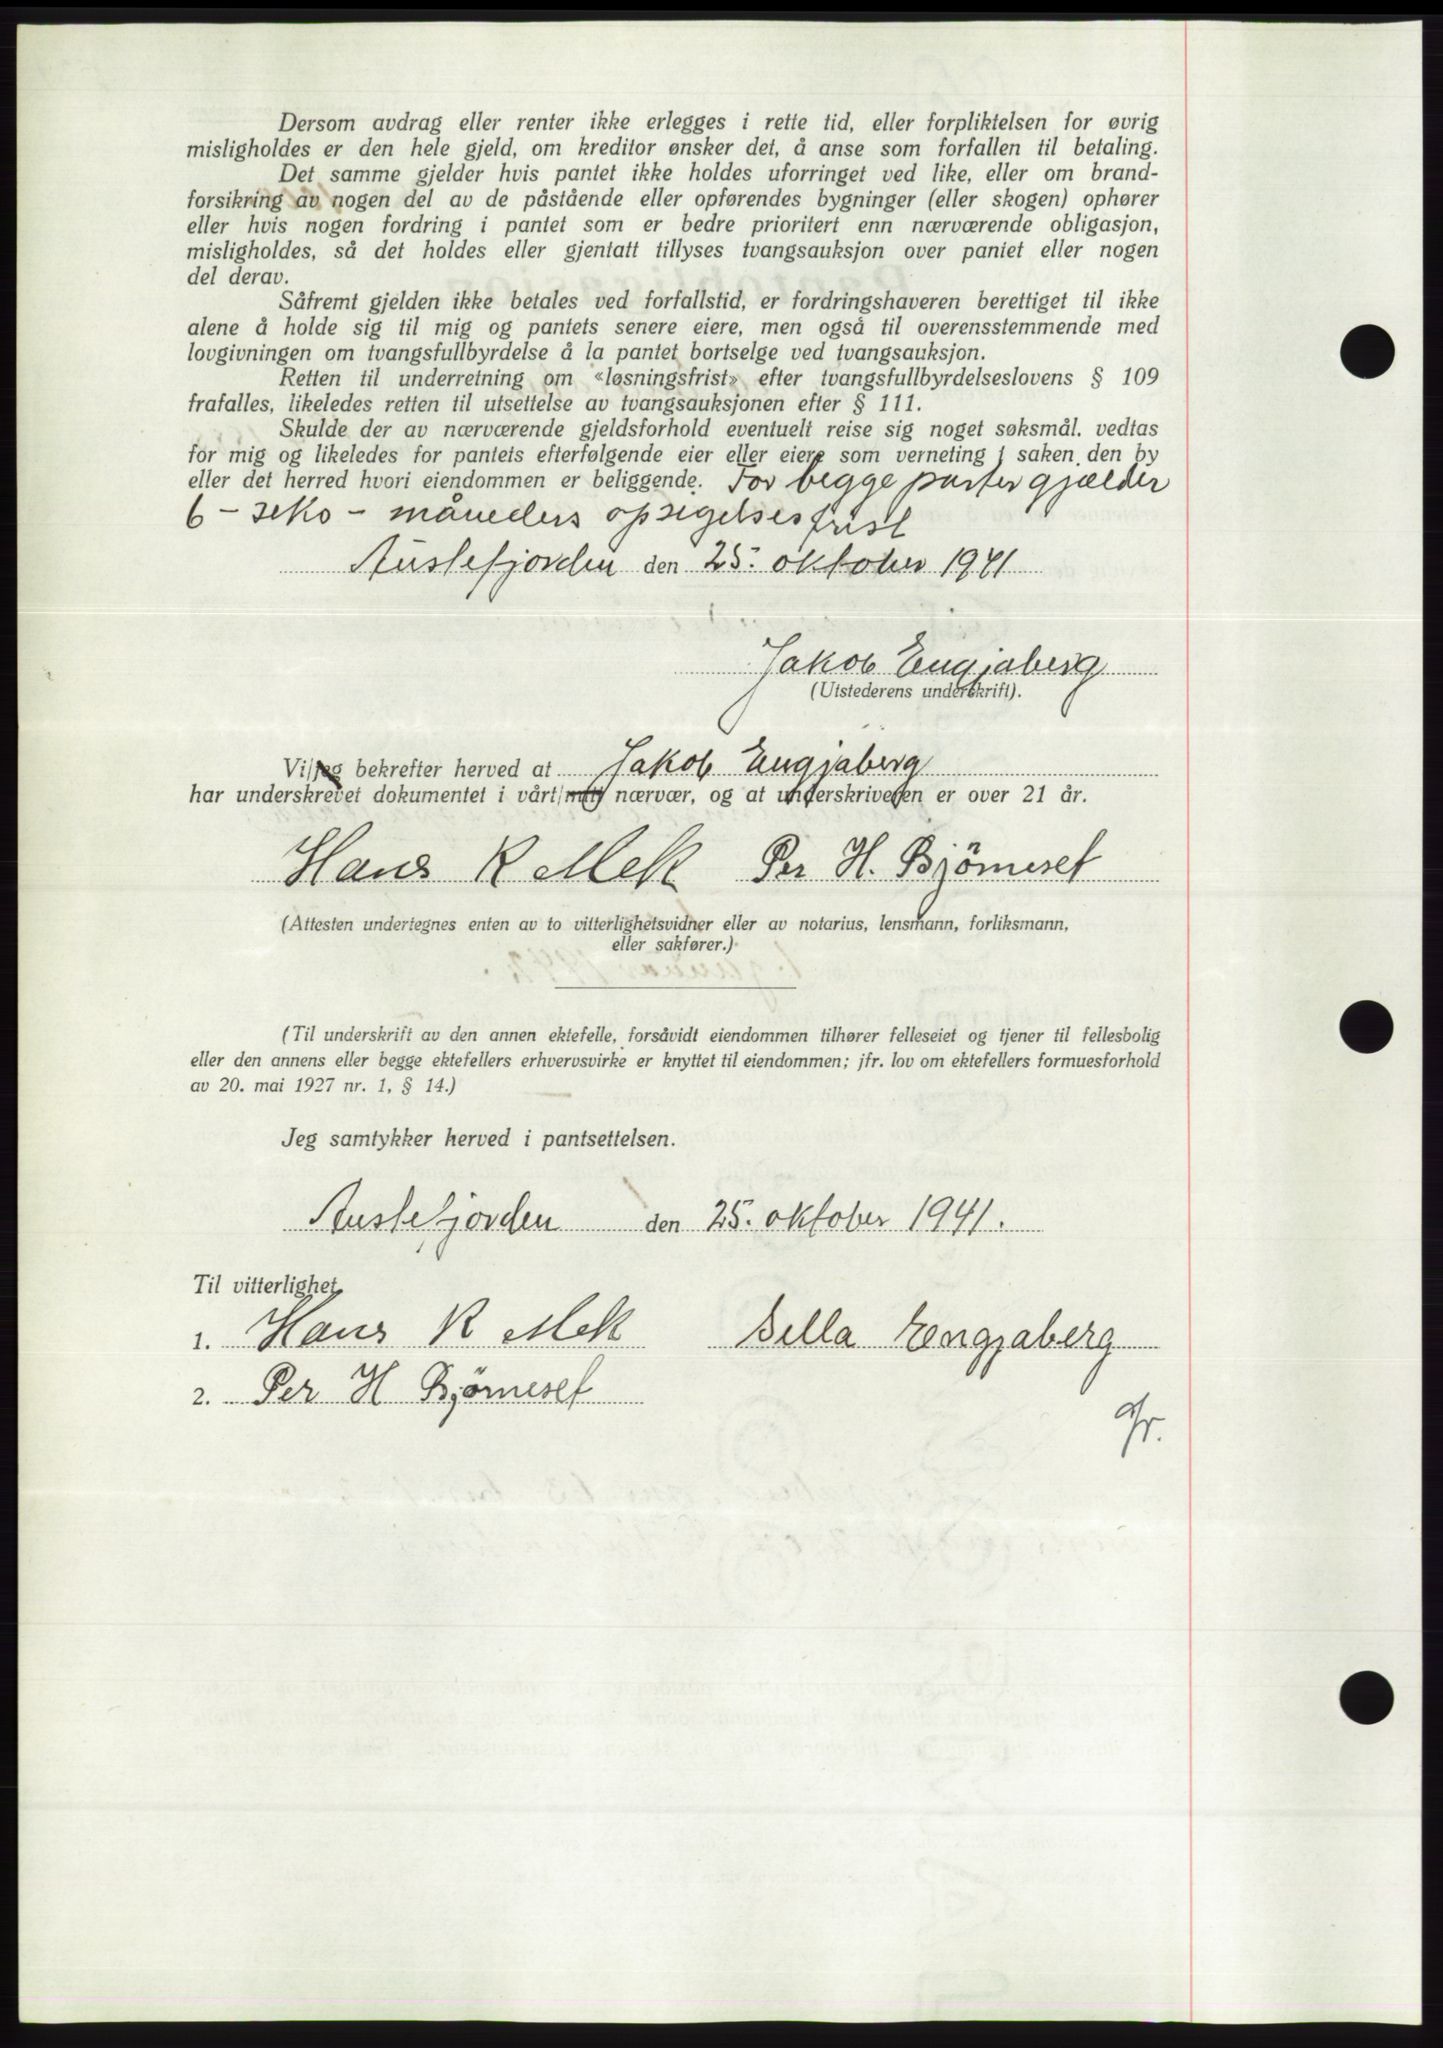 Dersom avdrag eller renter ikke erlegges i rette tid, eller forpliktelsen for øvrig
misligholdes er den hele gjeld, om kreditor ønsker det, å anse som forfallen til betaling.
Det samme gjelder hvis pantet ikke holdes uforringet ved like, eller om brand-
forsikring av nogen del av de påstående eller opførendes bygninger (eller skogen) ophører
eller hvis nogen fordring i pantet som er bedre prioritert enn nærværende obligasjon,
misligholdes, så det holdes eller gjentatt tillyses tvangsauksjon over pantet eller nogen
del derav.
Såfremt gjelden ikke betales ved forfallstid, er fordringshaveren berettiget til ikke
alene å holde sig til mig og pantets senere eiere, men også til overensstemmende med
lovgivningen om tvangsfullbyrdelse å la pantet bortselge ved tvangsauksjon.
Retten til underretning om «løsningsfrist» efter tvangsfullbyrdelseslovens § 109
frafalles, likeledes retten til utsettelse av tvangsauksjonen efter § 111.
Skulde der av nærværende gjeldsforhold eventuelt reise sig noget søksmål. vedtas
for mig og likeledes for pantets efterfølgende eier eller eiere som verneting i saken den by
eller det herred hvori eiendommen er beliggende. For begge parter gjælder
6 - seks - måneders opsigelsesfrist
Austefjorden den 25. oktober 1941
Jakob Engjaberg
(Utstederens underskrift).
Vi/jeg bekrefter herved at Jakob Engjaberg
har underskrevet dokumentet i vårt/mitt nærvær, og at underskriveren er over 21 år.
Hans R Mek Per H. Björneset
(Attesten undertegnes enten av to vitterlighetsvidner eller av notarius, lensmann, forliksmann,
eller sakfører.)
(Til underskrift av den annen ektefelle, forsåvidt eiendommen tilhører felleseiet og tjener til fellesbolig
eller den annens eller begge ektefellers erhvervsvirke er knyttet til eiendommen; jfr. lov om ektefellers formuesforhold
av 20. mai 1927 nr. 1, § 14.)
Jeg samtykker herved i pantsettelsen.
Austefjorden den 25. oktober 1941.
Til vitterlighet
1. Hans R Mek Sella Engjaberg
2. Per H Björneset